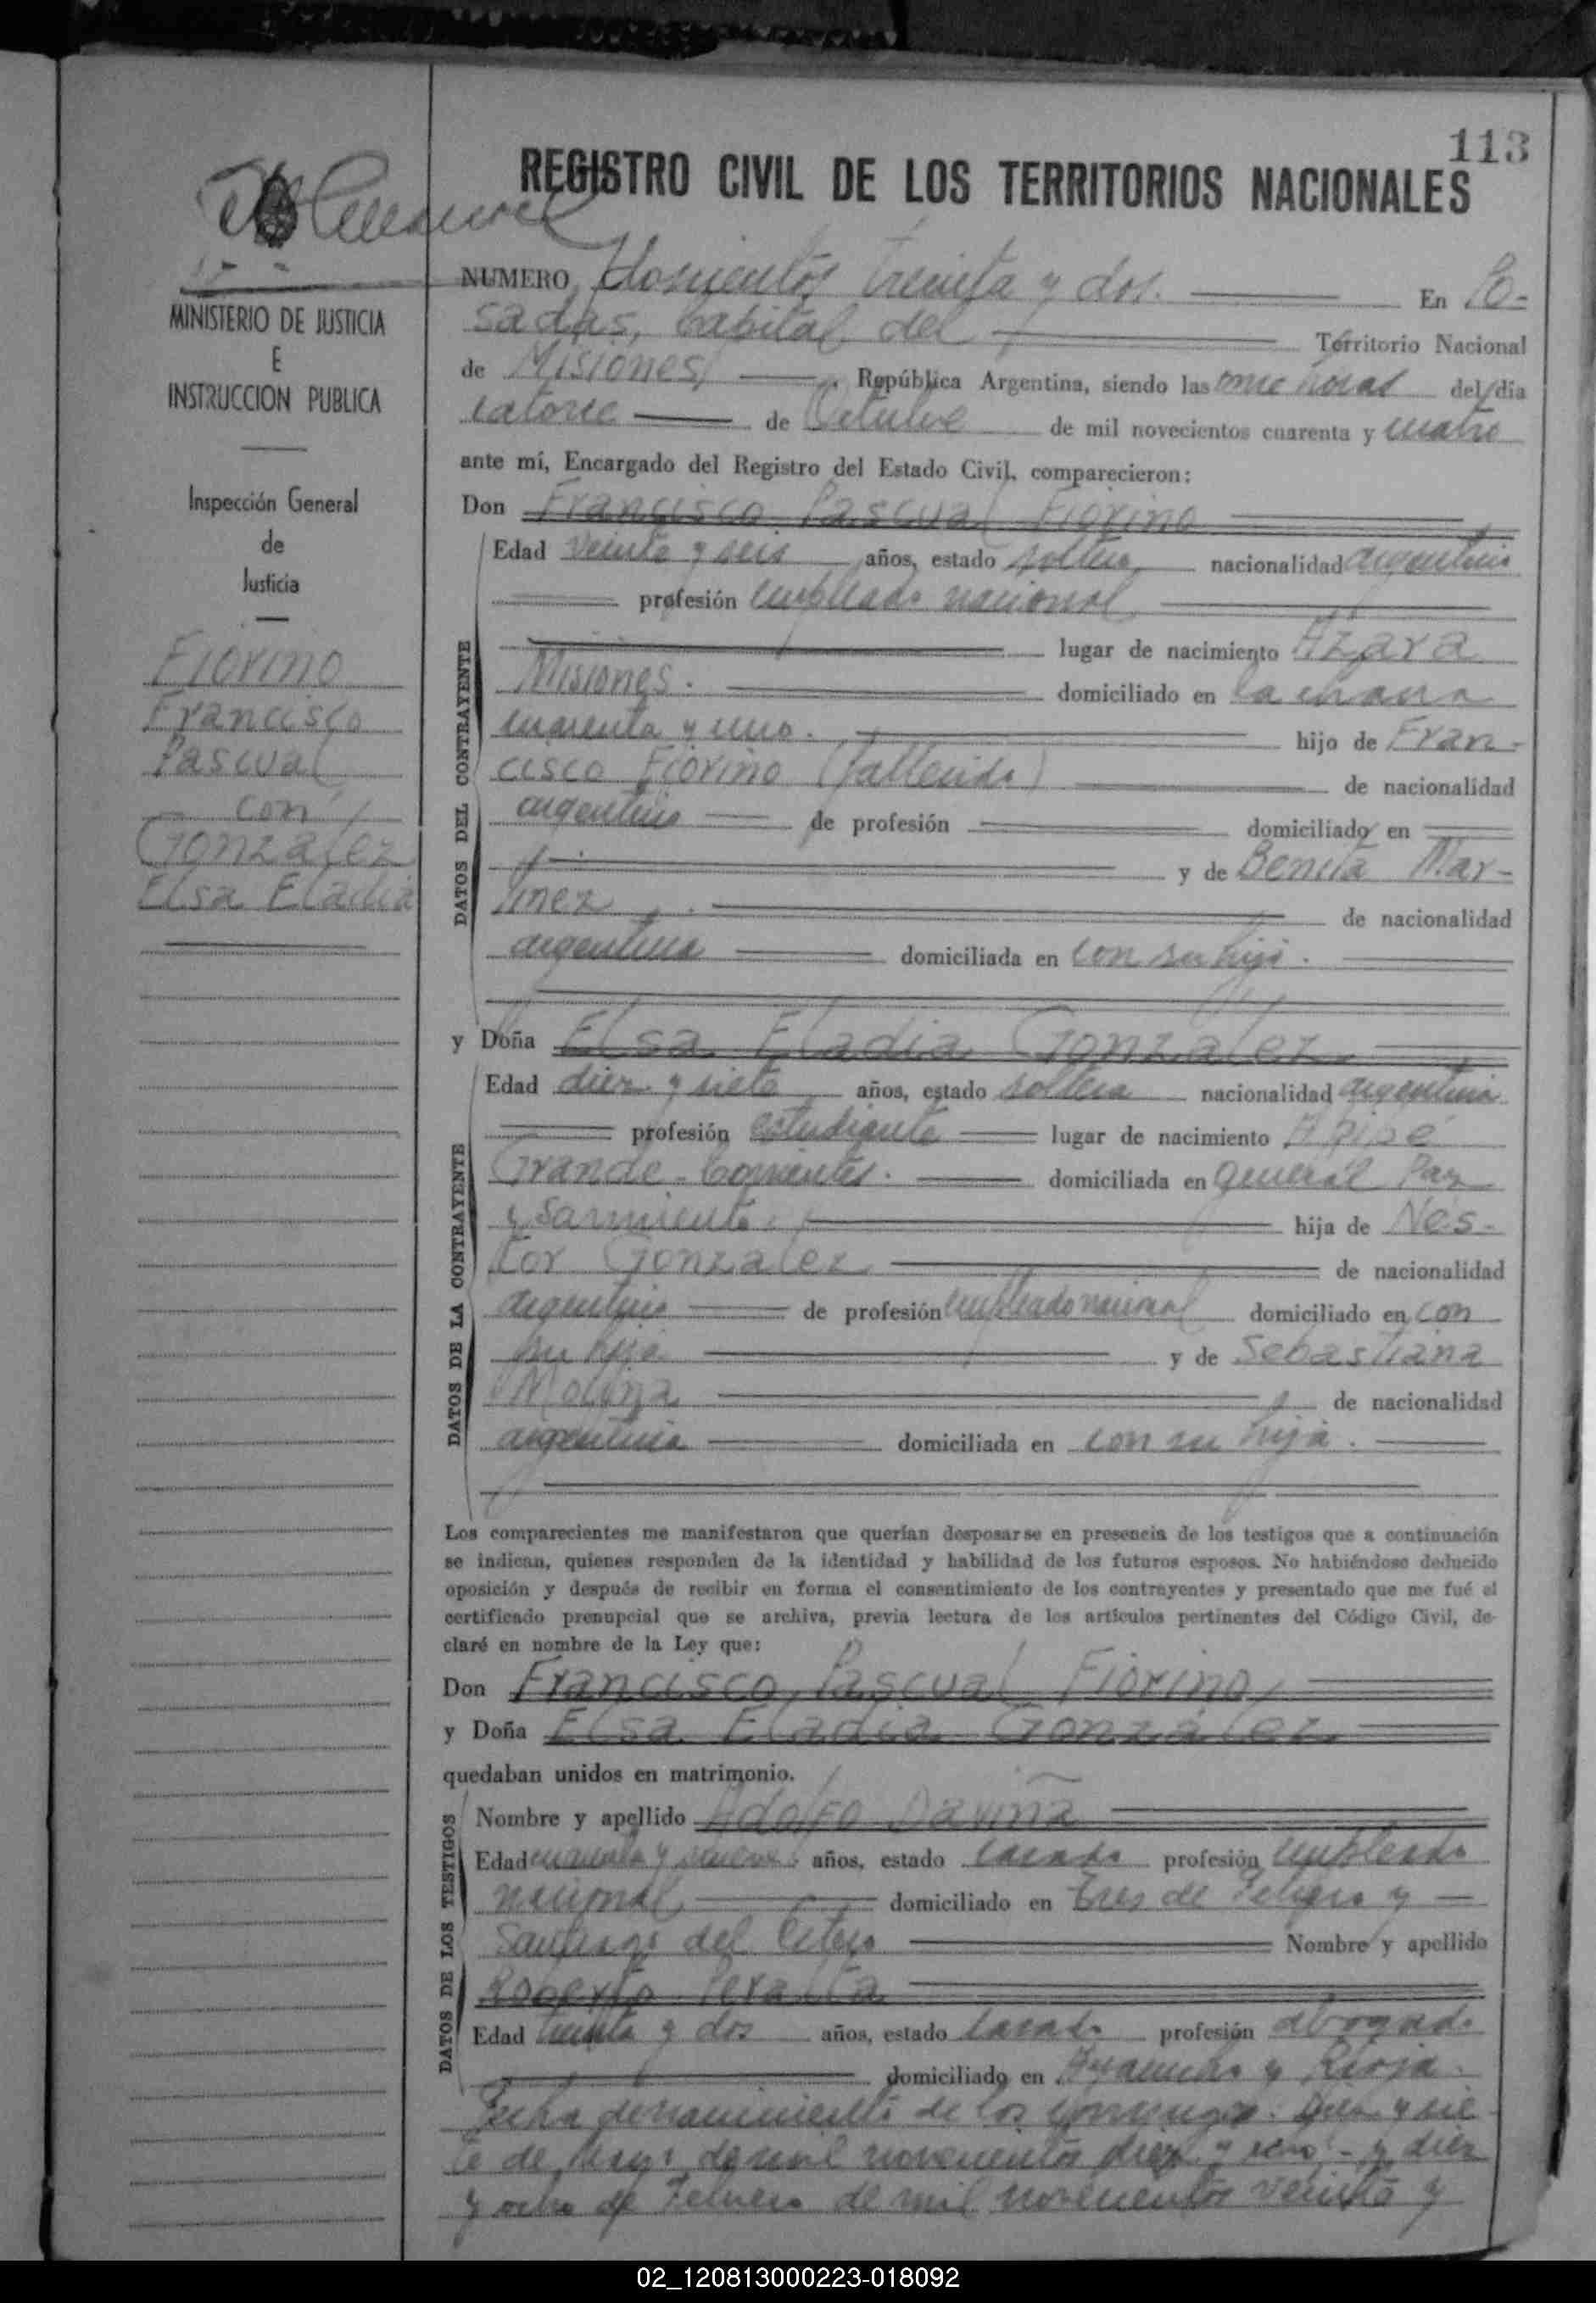 113
REGISTRO CIVIL DE LOS TERRITORIOS NACIONALES
MINISTERIO DE JUSTICIA
E
INSTRUCCION PUBLICA
Inspección General
de
Justicia
Fiorino
Francisco
Pascual
con
Gonzalez
Elsa Eladia
NUMERO Doscientos treinta y dos. En Po-
sadas, Capital del Territorio Nacional
de Misiones, República Argentina, siendo las once horas del día
catorce de Octubre de mil novecientos cuarenta y cuatro
ante mí, Encargado del Registro del Estado Civil, comparecieron:
Don Francisco Pascual Fiorino
Edad veinte y seis años, estado soltero nacionalidad argentino
profesión empleado nacional
lugar de nacimiento Azara
Misiones. domiciliado en la chacra
cuarenta y uno. hijo de Fran-
cisco Fiorino (fallecido) de nacionalidad
argentino de profesión domiciliado en
y de Benita Mar-
tinez de nacionalidad
argentina domiciliada en con su hijo.
DATOS DEL CONTRAYENTE
y Doña Elsa Eladia Gonzalez
Edad diez y siete años, estado soltera nacionalidad argentina
profesión estudiante lugar de nacimiento Apipé
Grande - Corrientes. domiciliada en General Paz
y Sarmiento. hija de Nes-
tor Gonzalez de nacionalidad
argentino de profesión empleado nacional domiciliado en con
su hija y de Sebastiana
Molina de nacionalidad
argentina domiciliada en con su hija.
DATOS DE LA CONTRAYENTE
Los comparecientes me manifestaron que querían desposarse en presencia de los testigos que a continuación
se indican, quienes responden de la identidad y habilidad de los futuros esposos. No habiéndose deducido
oposición y después de recibir en forma el consentimiento de los contrayentes y presentado que me fué el
certificado prenupcial que se archiva, previa lectura de los artículos pertinentes del Código Civil, de-
claré en nombre de la Ley que:
Don Francisco Pascual Fiorino
y Doña Elsa Eladia Gonzalez
quedaban unidos en matrimonio.
Nombre y apellido Adolfo Daviña
Edad cuarenta y nueve años, estado casado profesión empleado
nacional domiciliado en Tres de Febrero y
Santiago del Estero Nombre y apellido
Roberto Peralta
Edad treinta y dos años, estado casado profesión abogado
domiciliado en Ayacucho y Rioja.
DATOS DE LOS TESTIGOS
Fecha de nacimiento de los cónyuges: Diez y sie-
te de Mayo de mil novecientos diez y ocho - y diez
y ocho de Febrero de mil novecientos veinte y
02_120813000223-018092